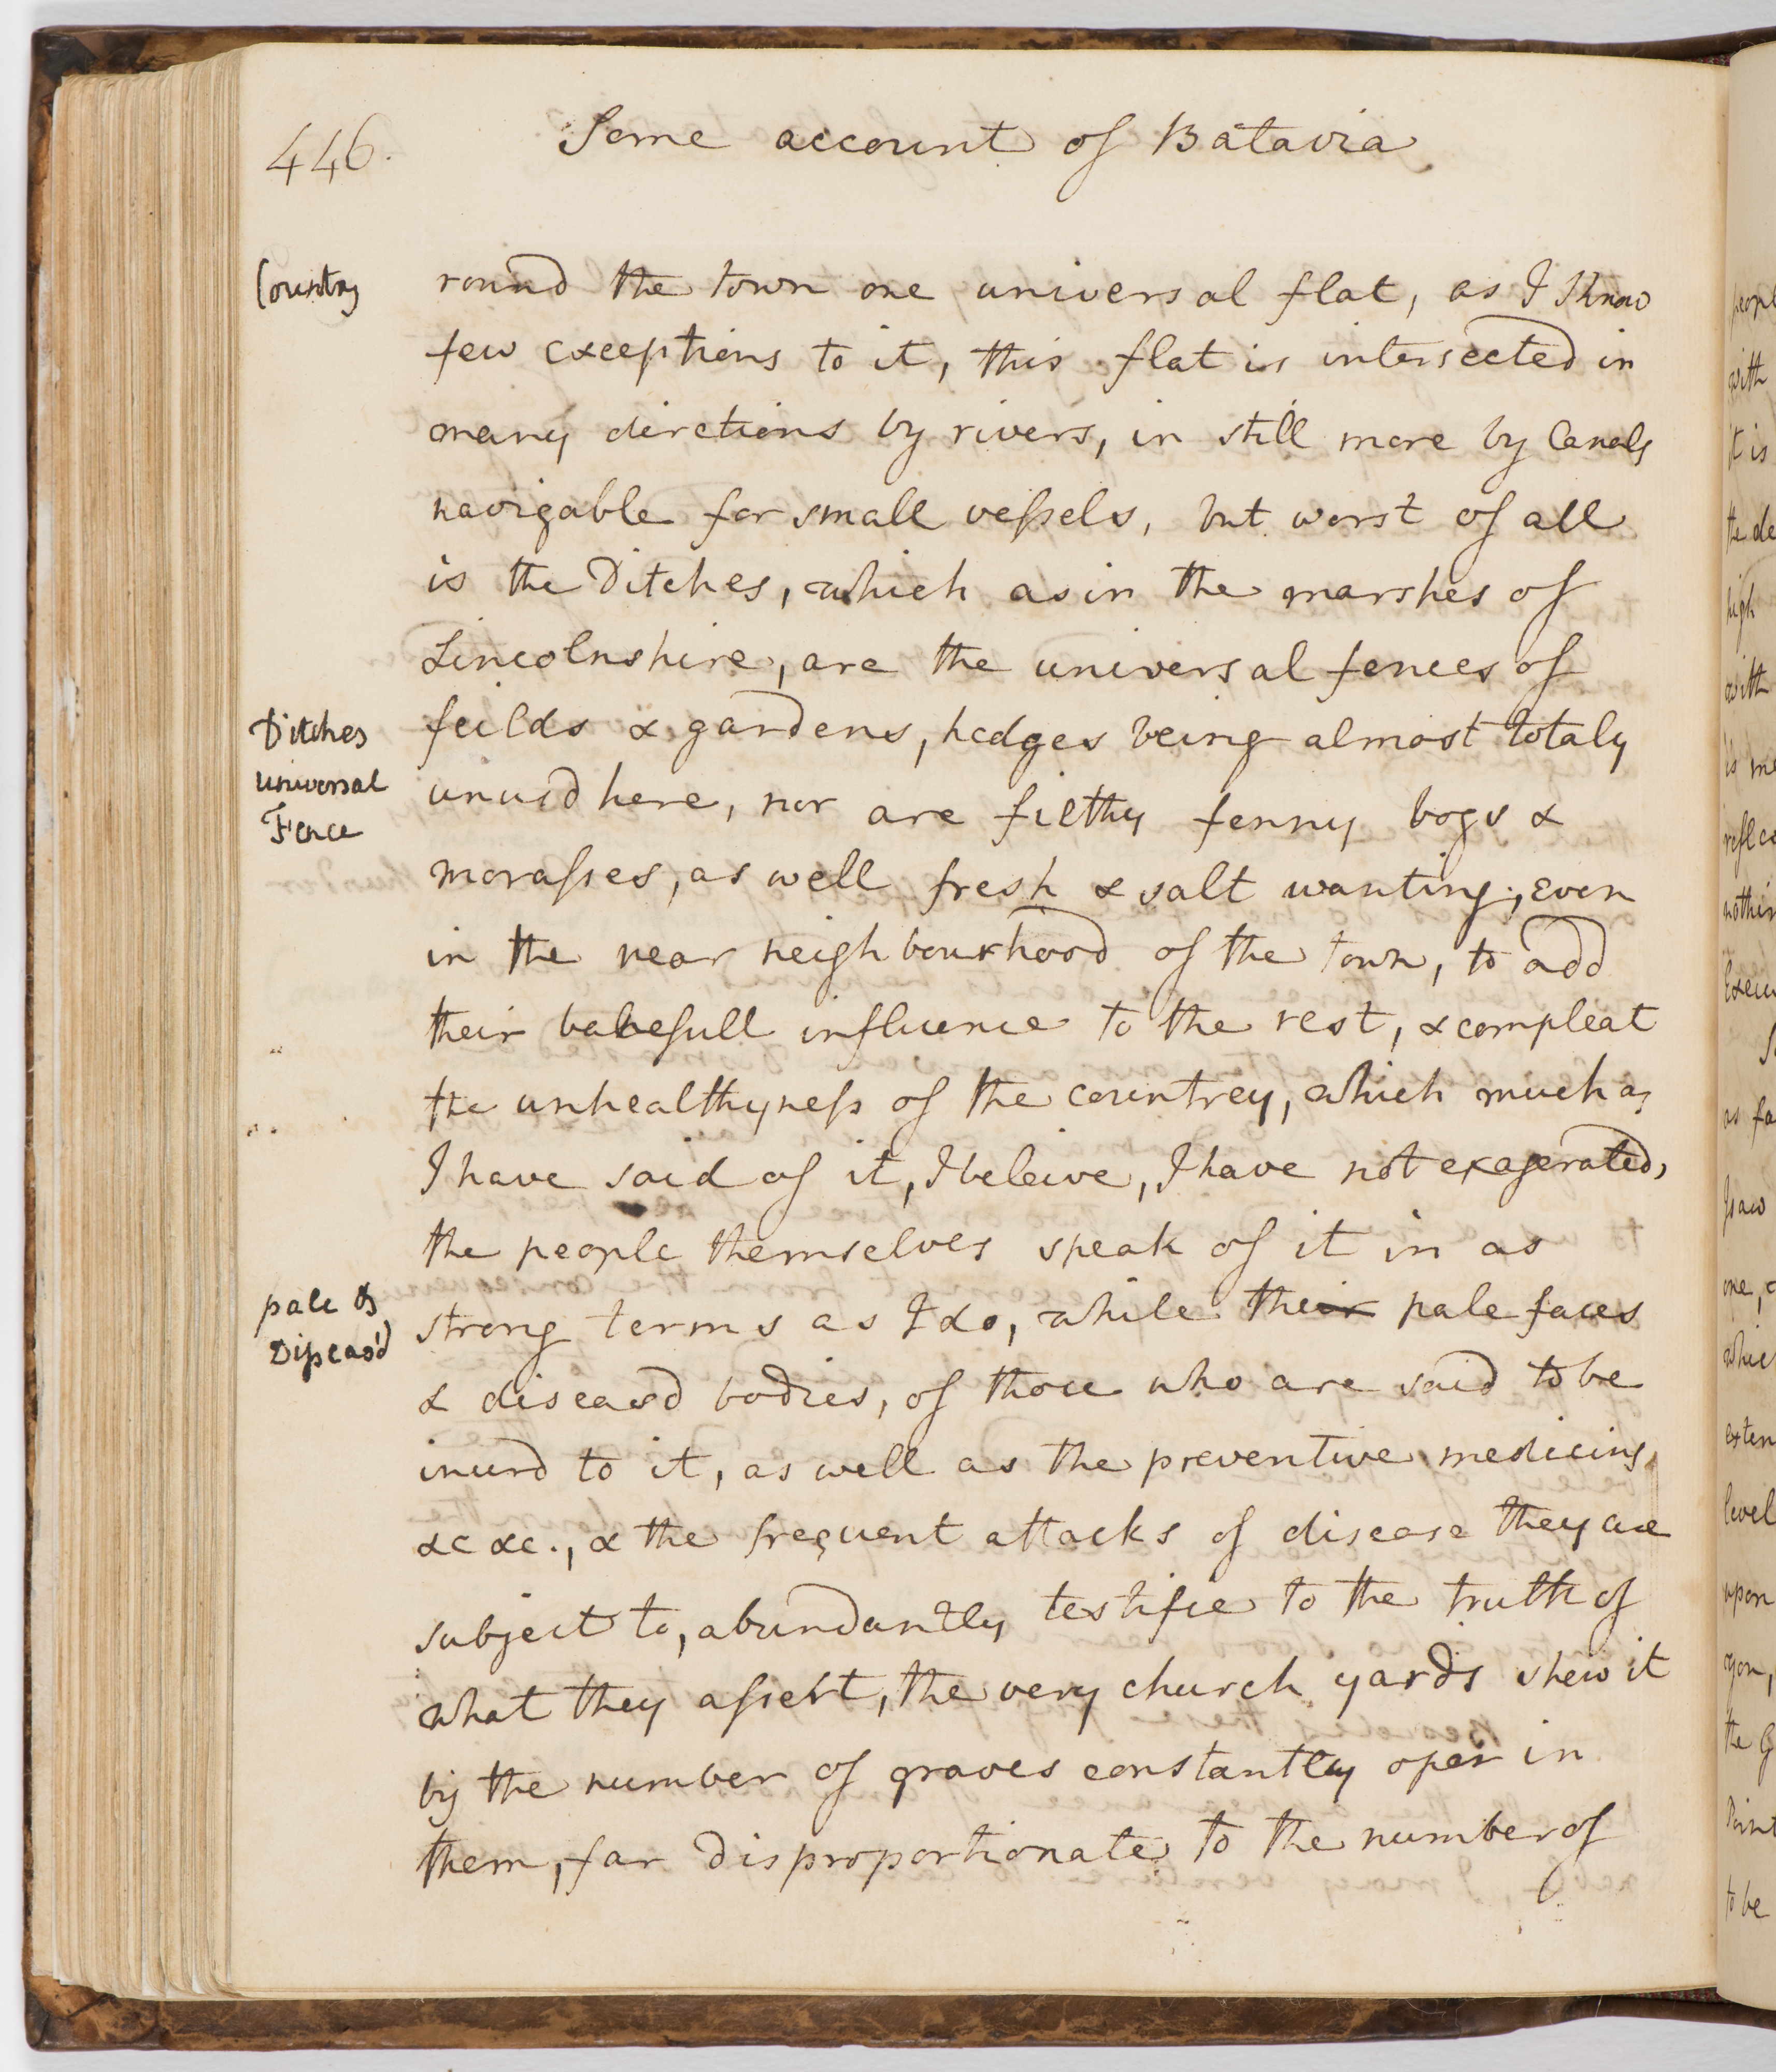 446.
Some account of Batavia
Country
round the town one universal flat, as I know
few exceptions to it, this flat is intersected in
many dirctions by rivers, in still more by Canals
navigable for small vessels, but worst of all
is the Ditches, which as in the marshes of
Lincolnshire, are the universal fences of
Ditches
universal
Fence
feilds & gardens, hedges being almost totaly
unusd here, nor are filthy fenny bogs &
morasses, as well fresh & salt wanting, even
in the near neighbourhood of the town, to add
their balefull influence to the rest, & compleat
the unhealthyness of the countrey, which much as
I have said of it, I beleive, I have not exagerated,
the people themselves speak of it in as
pale &
Diseas'd
strong terms as I do, while their pale faces
& diseasd bodies, of those who are said to be
inurd to it, as well as the preventive medicins,
&c &c., & the frequent attacks of disease they are
subject to, abundantly testifie to the truth of
what they assert, the very church yards shew it
by the number of graves constantly open in
them, far disproportionate to the number of
with
it is
high
with
as fa
whic
level
upon
you,
to be